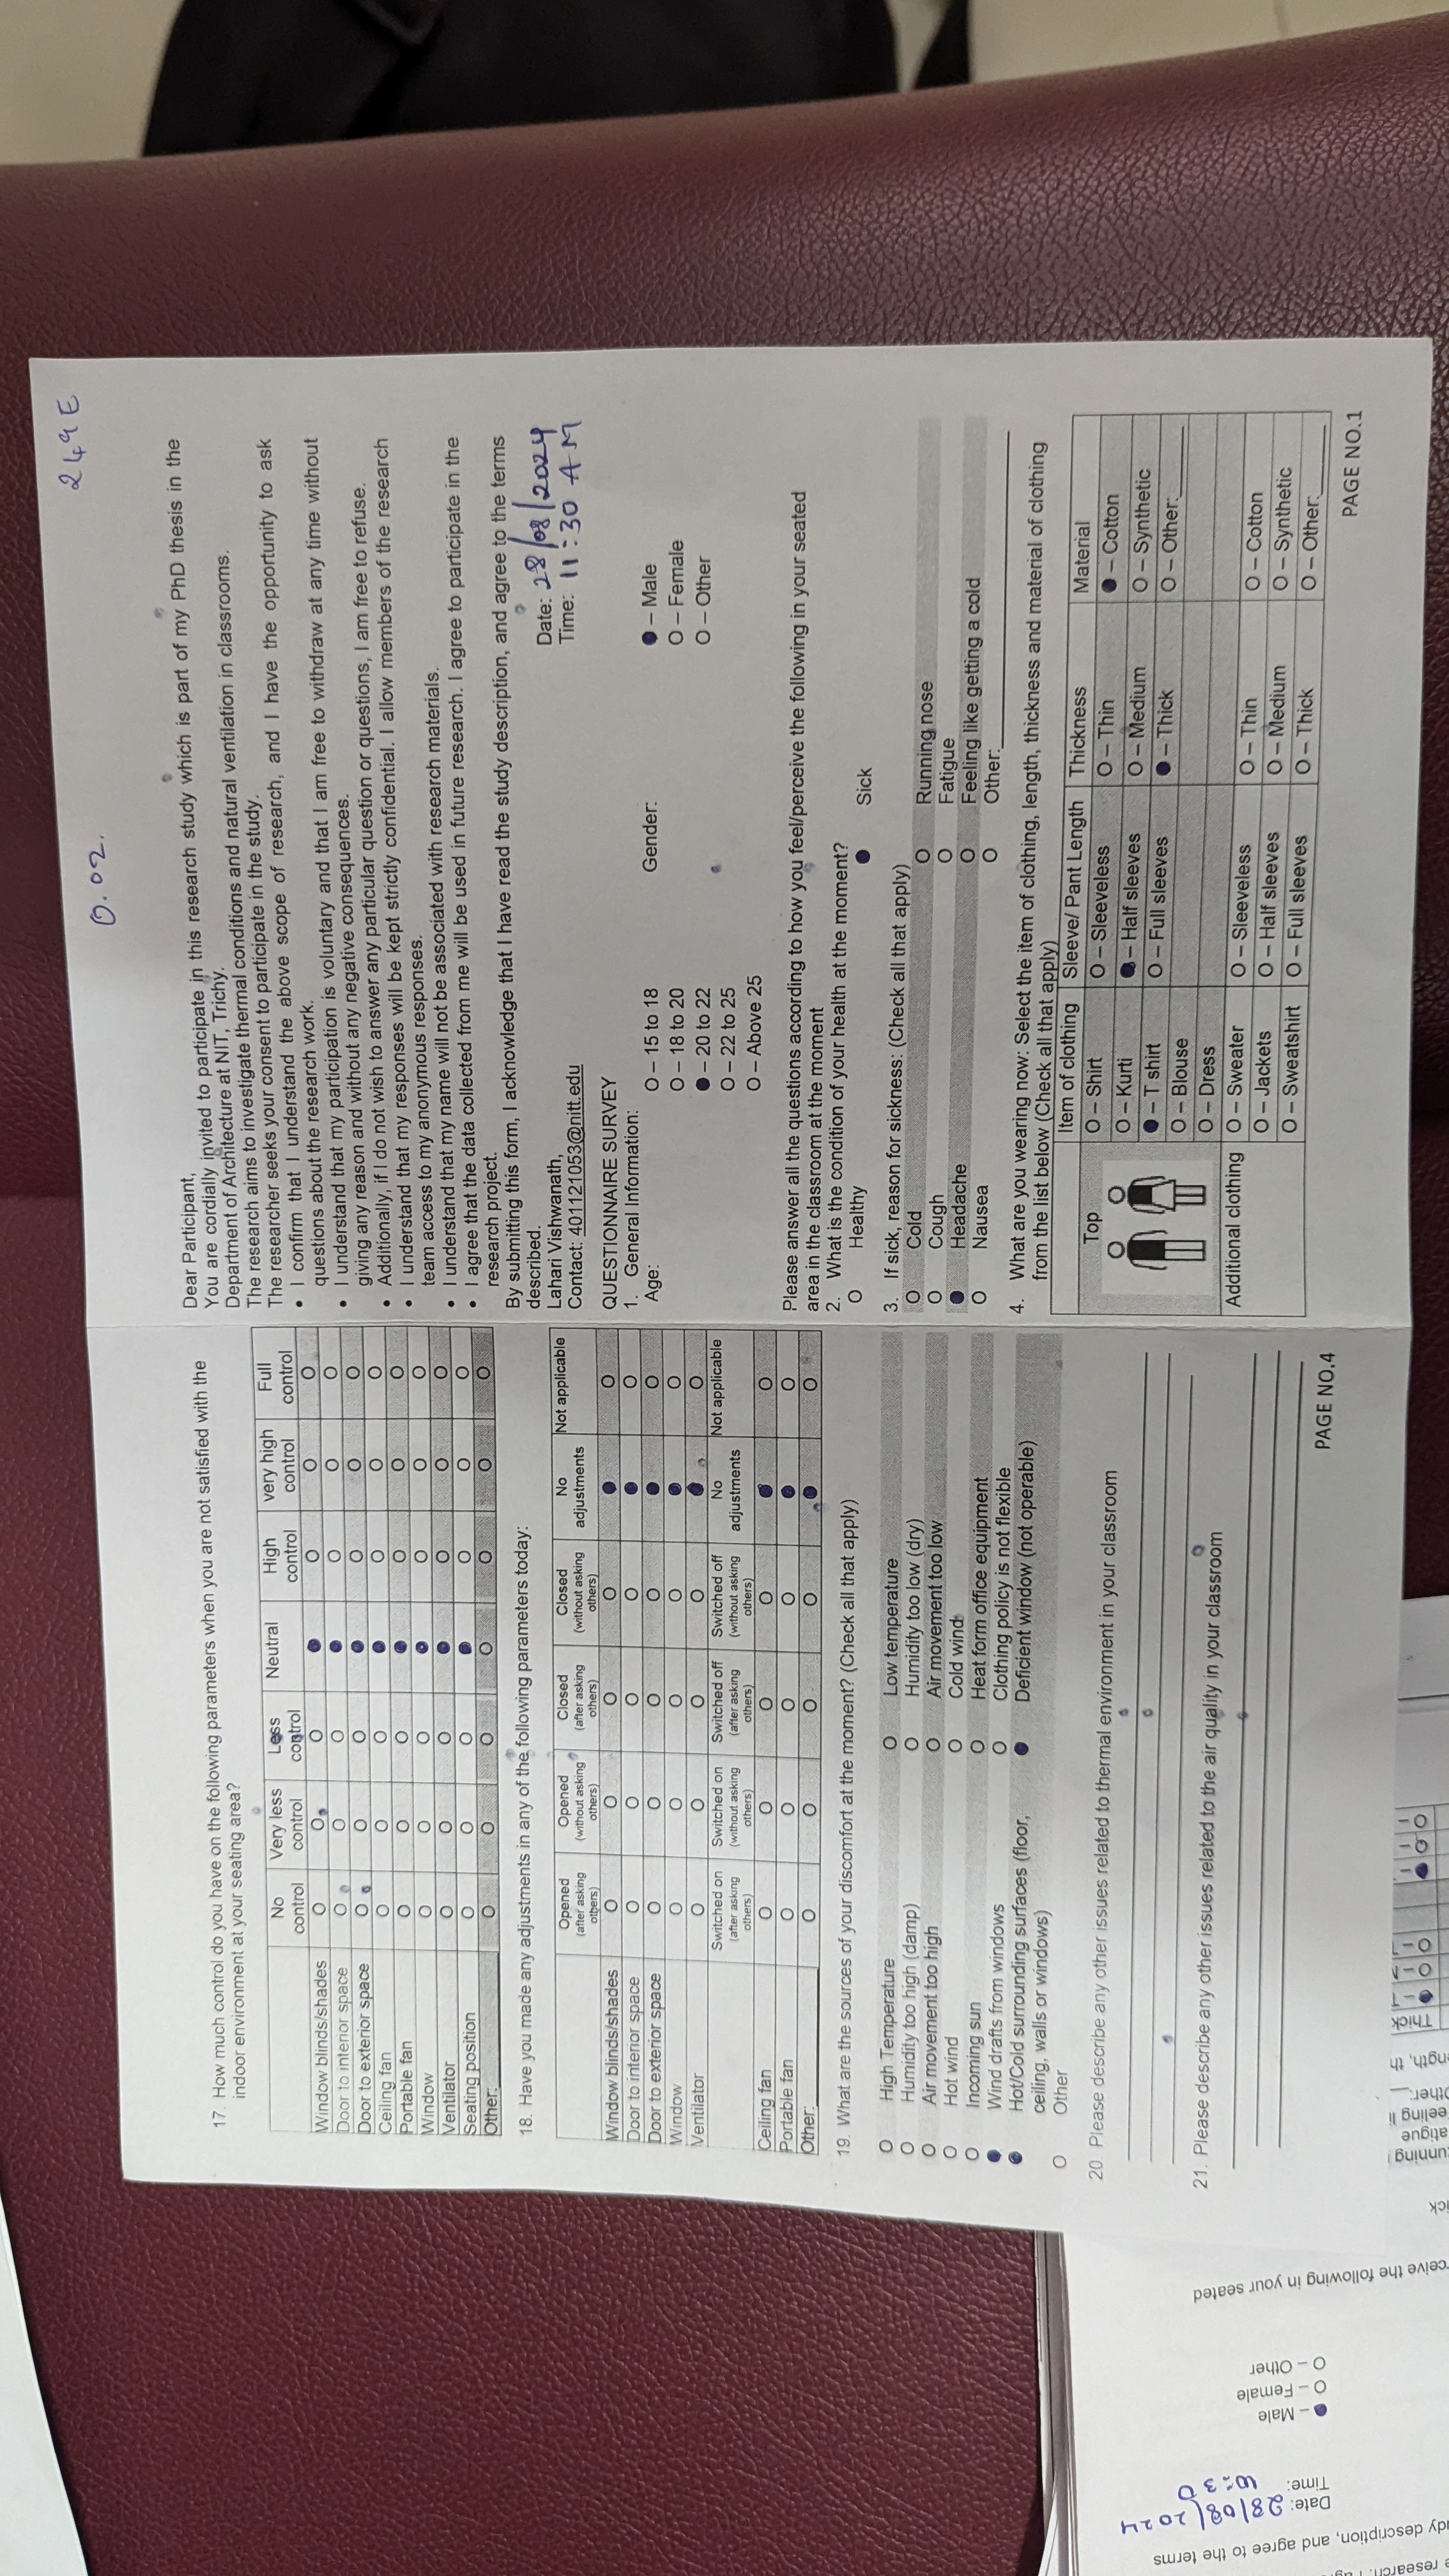 249E
0.02.
17. How much control do you have on the following parameters when you are not satisfied with the
indoor environment at your seating area?
No control Very less control Less control Neutral High control very high control Full control
Window blinds/shades O O O ● O O O
Door to interior space O O O ● O O O
Door to exterior space O O O ● O O O
Ceiling fan O O O ● O O O
Portable fan O O O ● O O O
Window O O O ● O O O
Ventilator O O O ● O O O
Seating position O O O ● O O O
Other:________ O O O O O O O
18. Have you made any adjustments in any of the following parameters today:
Opened (after asking others) Opened (without asking others) Closed (after asking others) Closed (without asking others) No adjustments Not applicable
Window blinds/shades O O O O ● O
Door to interior space O O O O ● O
Door to exterior space O O O O ● O
Window O O O O ● O
Ventilator O O O O ● O
Switched on (after asking others) Switched on (without asking others) Switched off (after asking others) Switched off (without asking others) No adjustments Not applicable
Ceiling fan O O O O ● O
Portable fan O O O O ● O
Other:________ O O O O ● O
19. What are the sources of your discomfort at the moment? (Check all that apply)
O High Temperature O Low temperature
O Humidity too high (damp) O Humidity too low (dry)
O Air movement too high O Air movement too low
O Hot wind O Cold wind
O Incoming sun O Heat form office equipment
● Wind drafts from windows O Clothing policy is not flexible
● Hot/Cold surrounding surfaces (floor, ● Deficient window (not operable)
ceiling, walls or windows)
O Other
20 Please describe any other issues related to thermal environment in your classroom
21. Please describe any other issues related to the air quality in your classroom
PAGE NO.4
Dear Participant,
You are cordially invited to participate in this research study which is part of my PhD thesis in the
Department of Architecture at NIT, Trichy.
The research aims to investigate thermal conditions and natural ventilation in classrooms.
The researcher seeks your consent to participate in the study.
• I confirm that I understand the above scope of research, and I have the opportunity to ask
questions about the research work.
• I understand that my participation is voluntary and that I am free to withdraw at any time without
giving any reason and without any negative consequences.
• Additionally, if I do not wish to answer any particular question or questions, I am free to refuse.
• I understand that my responses will be kept strictly confidential. I allow members of the research
team access to my anonymous responses.
• I understand that my name will not be associated with research materials.
• I agree that the data collected from me will be used in future research. I agree to participate in the
research project.
By submitting this form, I acknowledge that I have read the study description, and agree to the terms
described.
Lahari Vishwanath,
Contact: 401121053@nitt.edu
Date: 28/08/2024
Time: 11:30 AM
QUESTIONNAIRE SURVEY
1. General Information:
Age: O – 15 to 18 Gender: ● – Male
O – 18 to 20 O – Female
● – 20 to 22 O – Other
O – 22 to 25
O – Above 25
Please answer all the questions according to how you feel/perceive the following in your seated
area in the classroom at the moment
2. What is the condition of your health at the moment?
O Healthy ● Sick
3. If sick, reason for sickness: (Check all that apply)
O Cold O Running nose
O Cough O Fatigue
● Headache O Feeling like getting a cold
O Nausea O Other:________
4. What are you wearing now: Select the item of clothing, length, thickness and material of clothing
from the list below (Check all that apply)
Item of clothing Sleeve/ Pant Length Thickness Material
Top O – Shirt O – Sleeveless O – Thin ● – Cotton
O – Kurti ● – Half sleeves O – Medium O – Synthetic
● – T shirt O – Full sleeves ● – Thick O – Other:________
O – Blouse
O – Dress
Additional clothing O – Sweater O – Sleeveless O – Thin O – Cotton
O – Jackets O – Half sleeves O – Medium O – Synthetic
O – Sweatshirt O – Full sleeves O – Thick O – Other:________
PAGE NO.1
research.
dy description, and agree to the terms
Date: 28/08/2024
Time: 10:30
● – Male
O – Female
O – Other
ceive the following in your seated
unning
atigue
eeling li
ther:
ngth, th
Thick